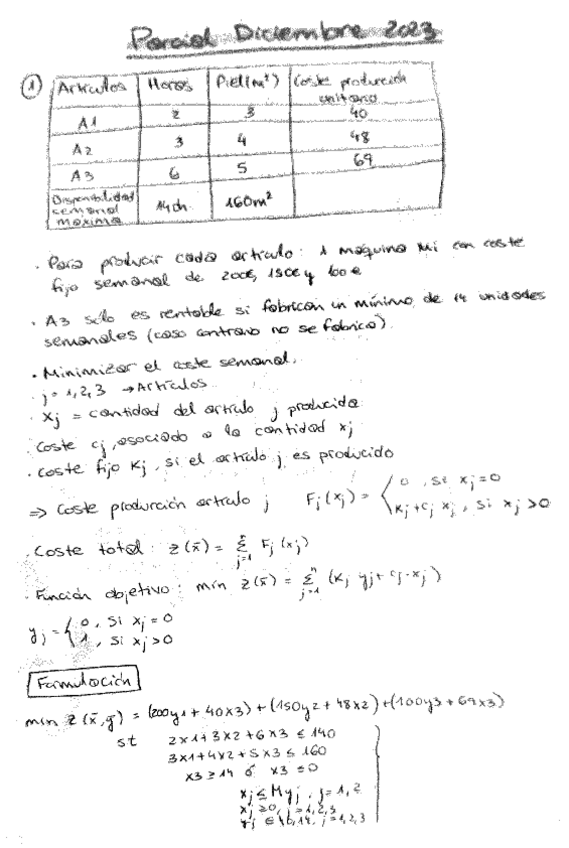 Parcial Diciembre 2023
① Artículos Horas Piel(m²) Coste producción unitario
A1 2 3 40
A2 3 4 48
A3 6 5 69
Disponibilidad semanal máxima 140h 160m²
· Para producir cada artículo: 1 máquina Mi con coste
fijo semanal de 200€, 150€ y 100€
· A3 sólo es rentable si fabrican un mínimo de 14 unidades
semanales (caso contrario no se fabrica).
· Minimizar el coste semanal.
· j = 1,2,3 → Artículos
· Xj = cantidad del artículo j producida
· Coste cj, asociado a la cantidad xj
· coste fijo Kj, si el artículo j es producido
⇒ Coste producción artículo j Fj(xj) = { 0, si xj=0
Kj + cj xj, si xj>0
· Coste total: z(x̄) = Σ j=1 Fj(xj)
· Función objetivo: mín z(x̄) = Σ j=1 n (Kj yj + cj·xj)
yj = { 0, si xj = 0
1, si xj>0
Formulación
mín z(x̄,ȳ) = (200y1 + 40x3) + (150y2 + 48x2) + (100y3 + 69x3)
st 2x1+3x2+6x3 ≤ 140
3x1+4x2+5x3 ≤ 160
x3 ≥ 14 ó x3 ≤ 0
xj ≤ Myj, j=1,2
xj ≥0, j=1,2,3
yj ∈ {0,1}, j=1,2,3